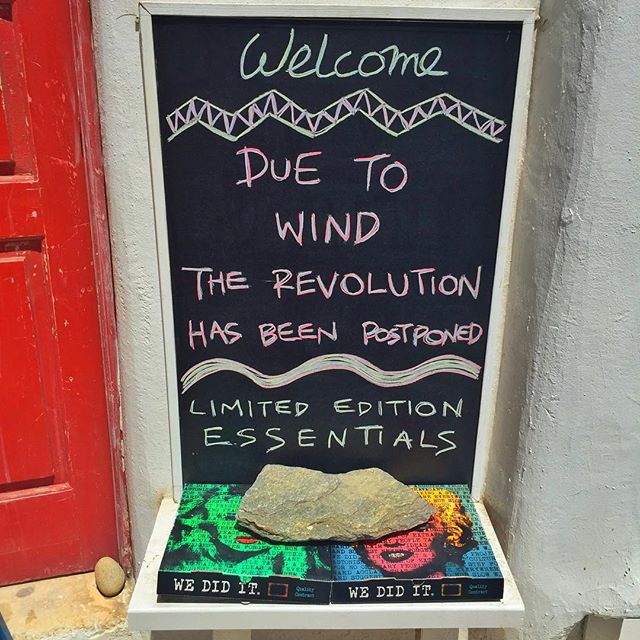 Welcome
DUE TO
WIND
THE REVOLUTION
HAS BEEN POSTPONED
LIMITED EDITION
ESSENTIALS
WE DID IT.
Quality
Contract
WE DID IT.
Quality
Contract